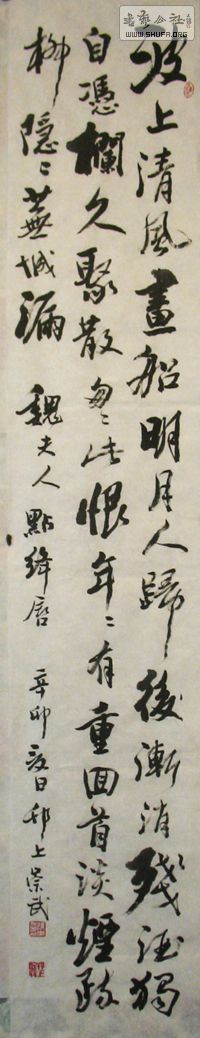 波上清風畫船明月人歸後漸消殘酒獨
自憑欄久聚散匆〻此恨年〻有重回首淡煙疏
柳隱〻蕪城漏 魏夫人 點絳唇 辛卯夏日邗上崇武
書藝公社
WWW.SHUFA.ORG